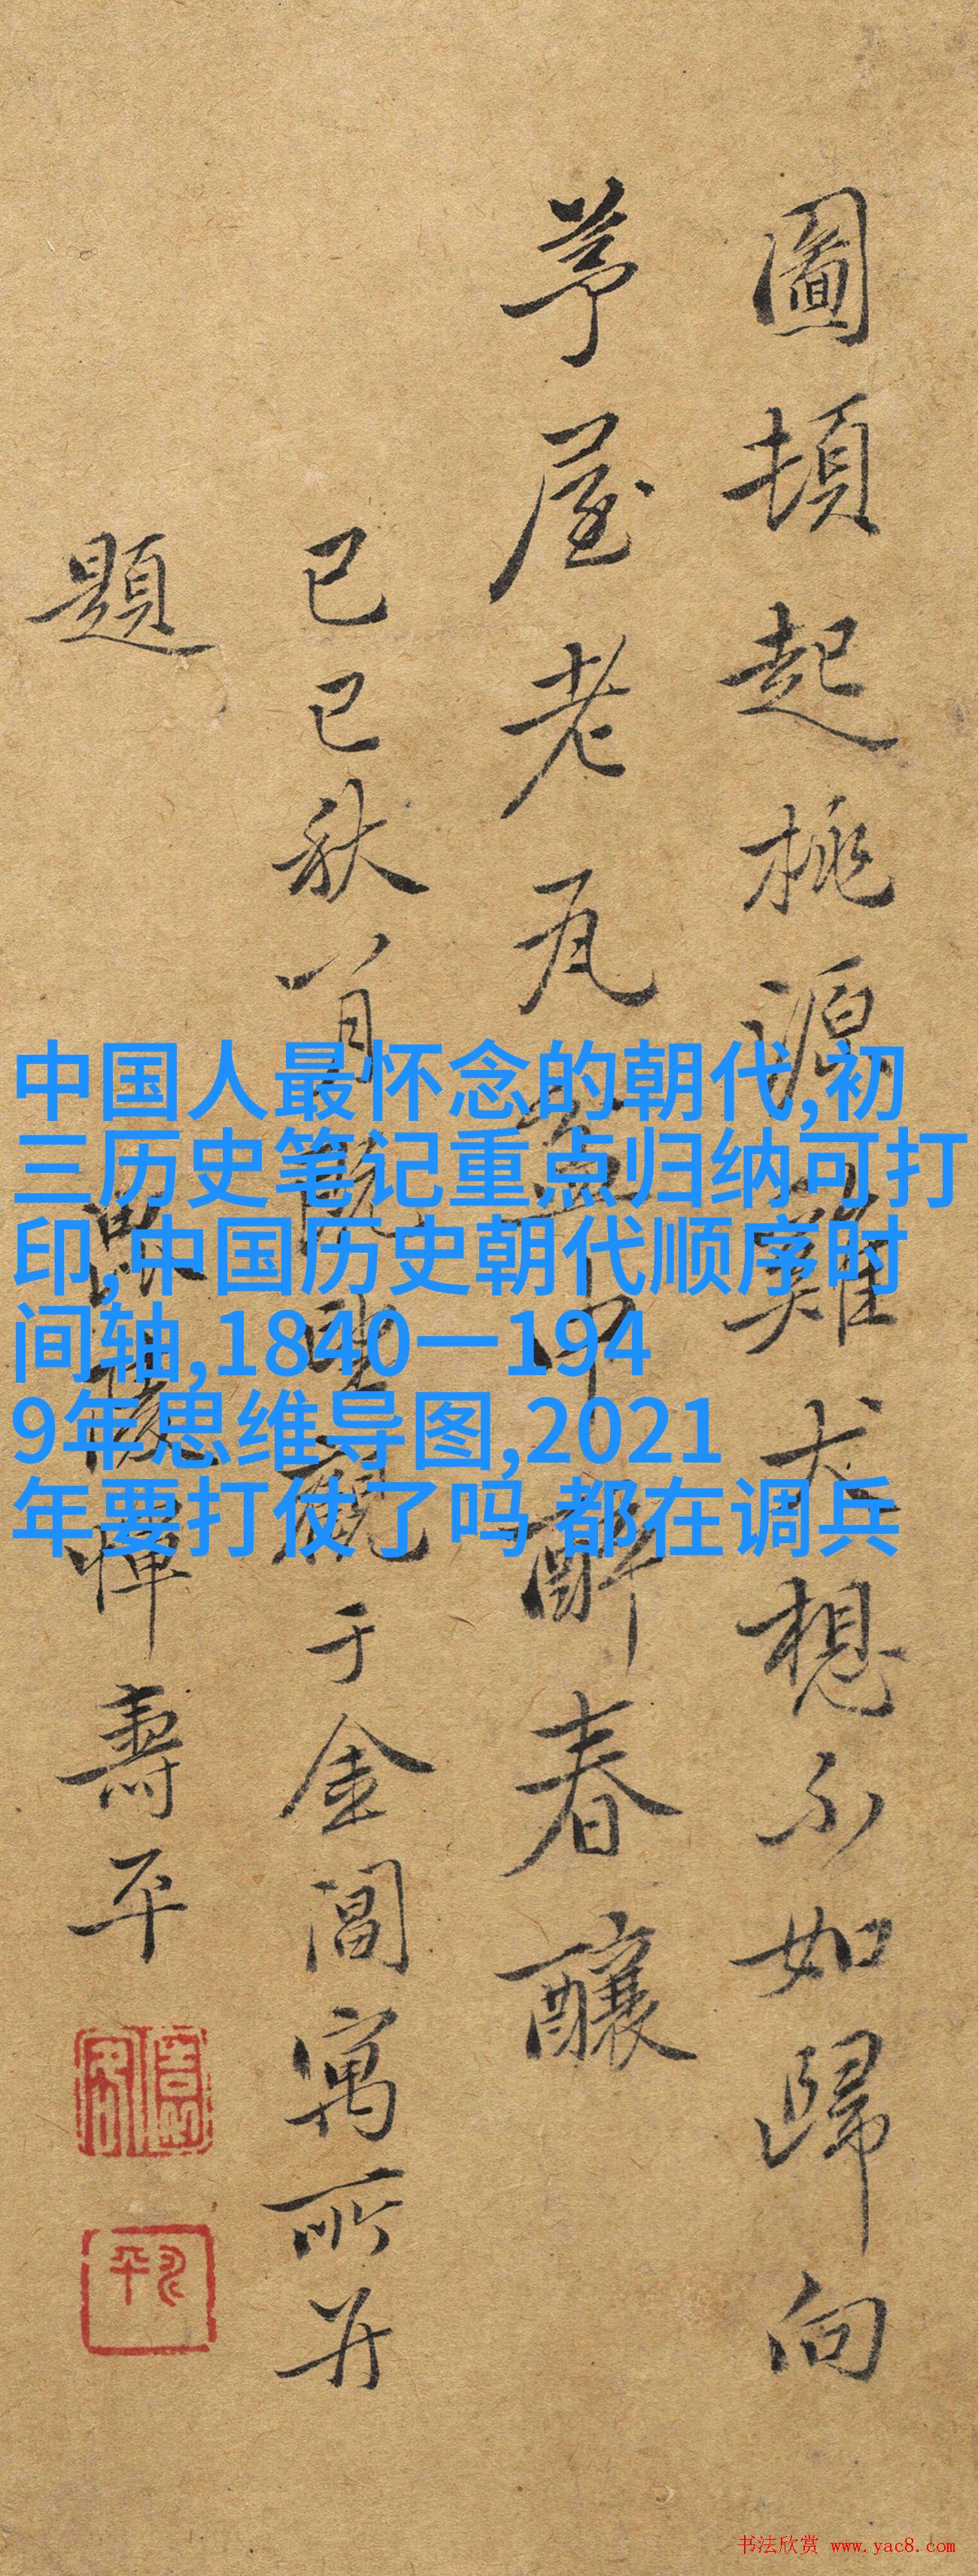 圖頓起桃源雞犬想不如歸向
茅屋老瓦盆中醉春釀
己巳秋八月既望觀于金閶寓所并
題 毘陵惲壽平
中国人最怀念的朝代,初
三历史笔记重点归纳可打
印,中国历史朝代顺序时
间轴,1840一194
9年思维导图,2021
年要打仗了吗 都在调兵
书法欣赏 www.yac8.com